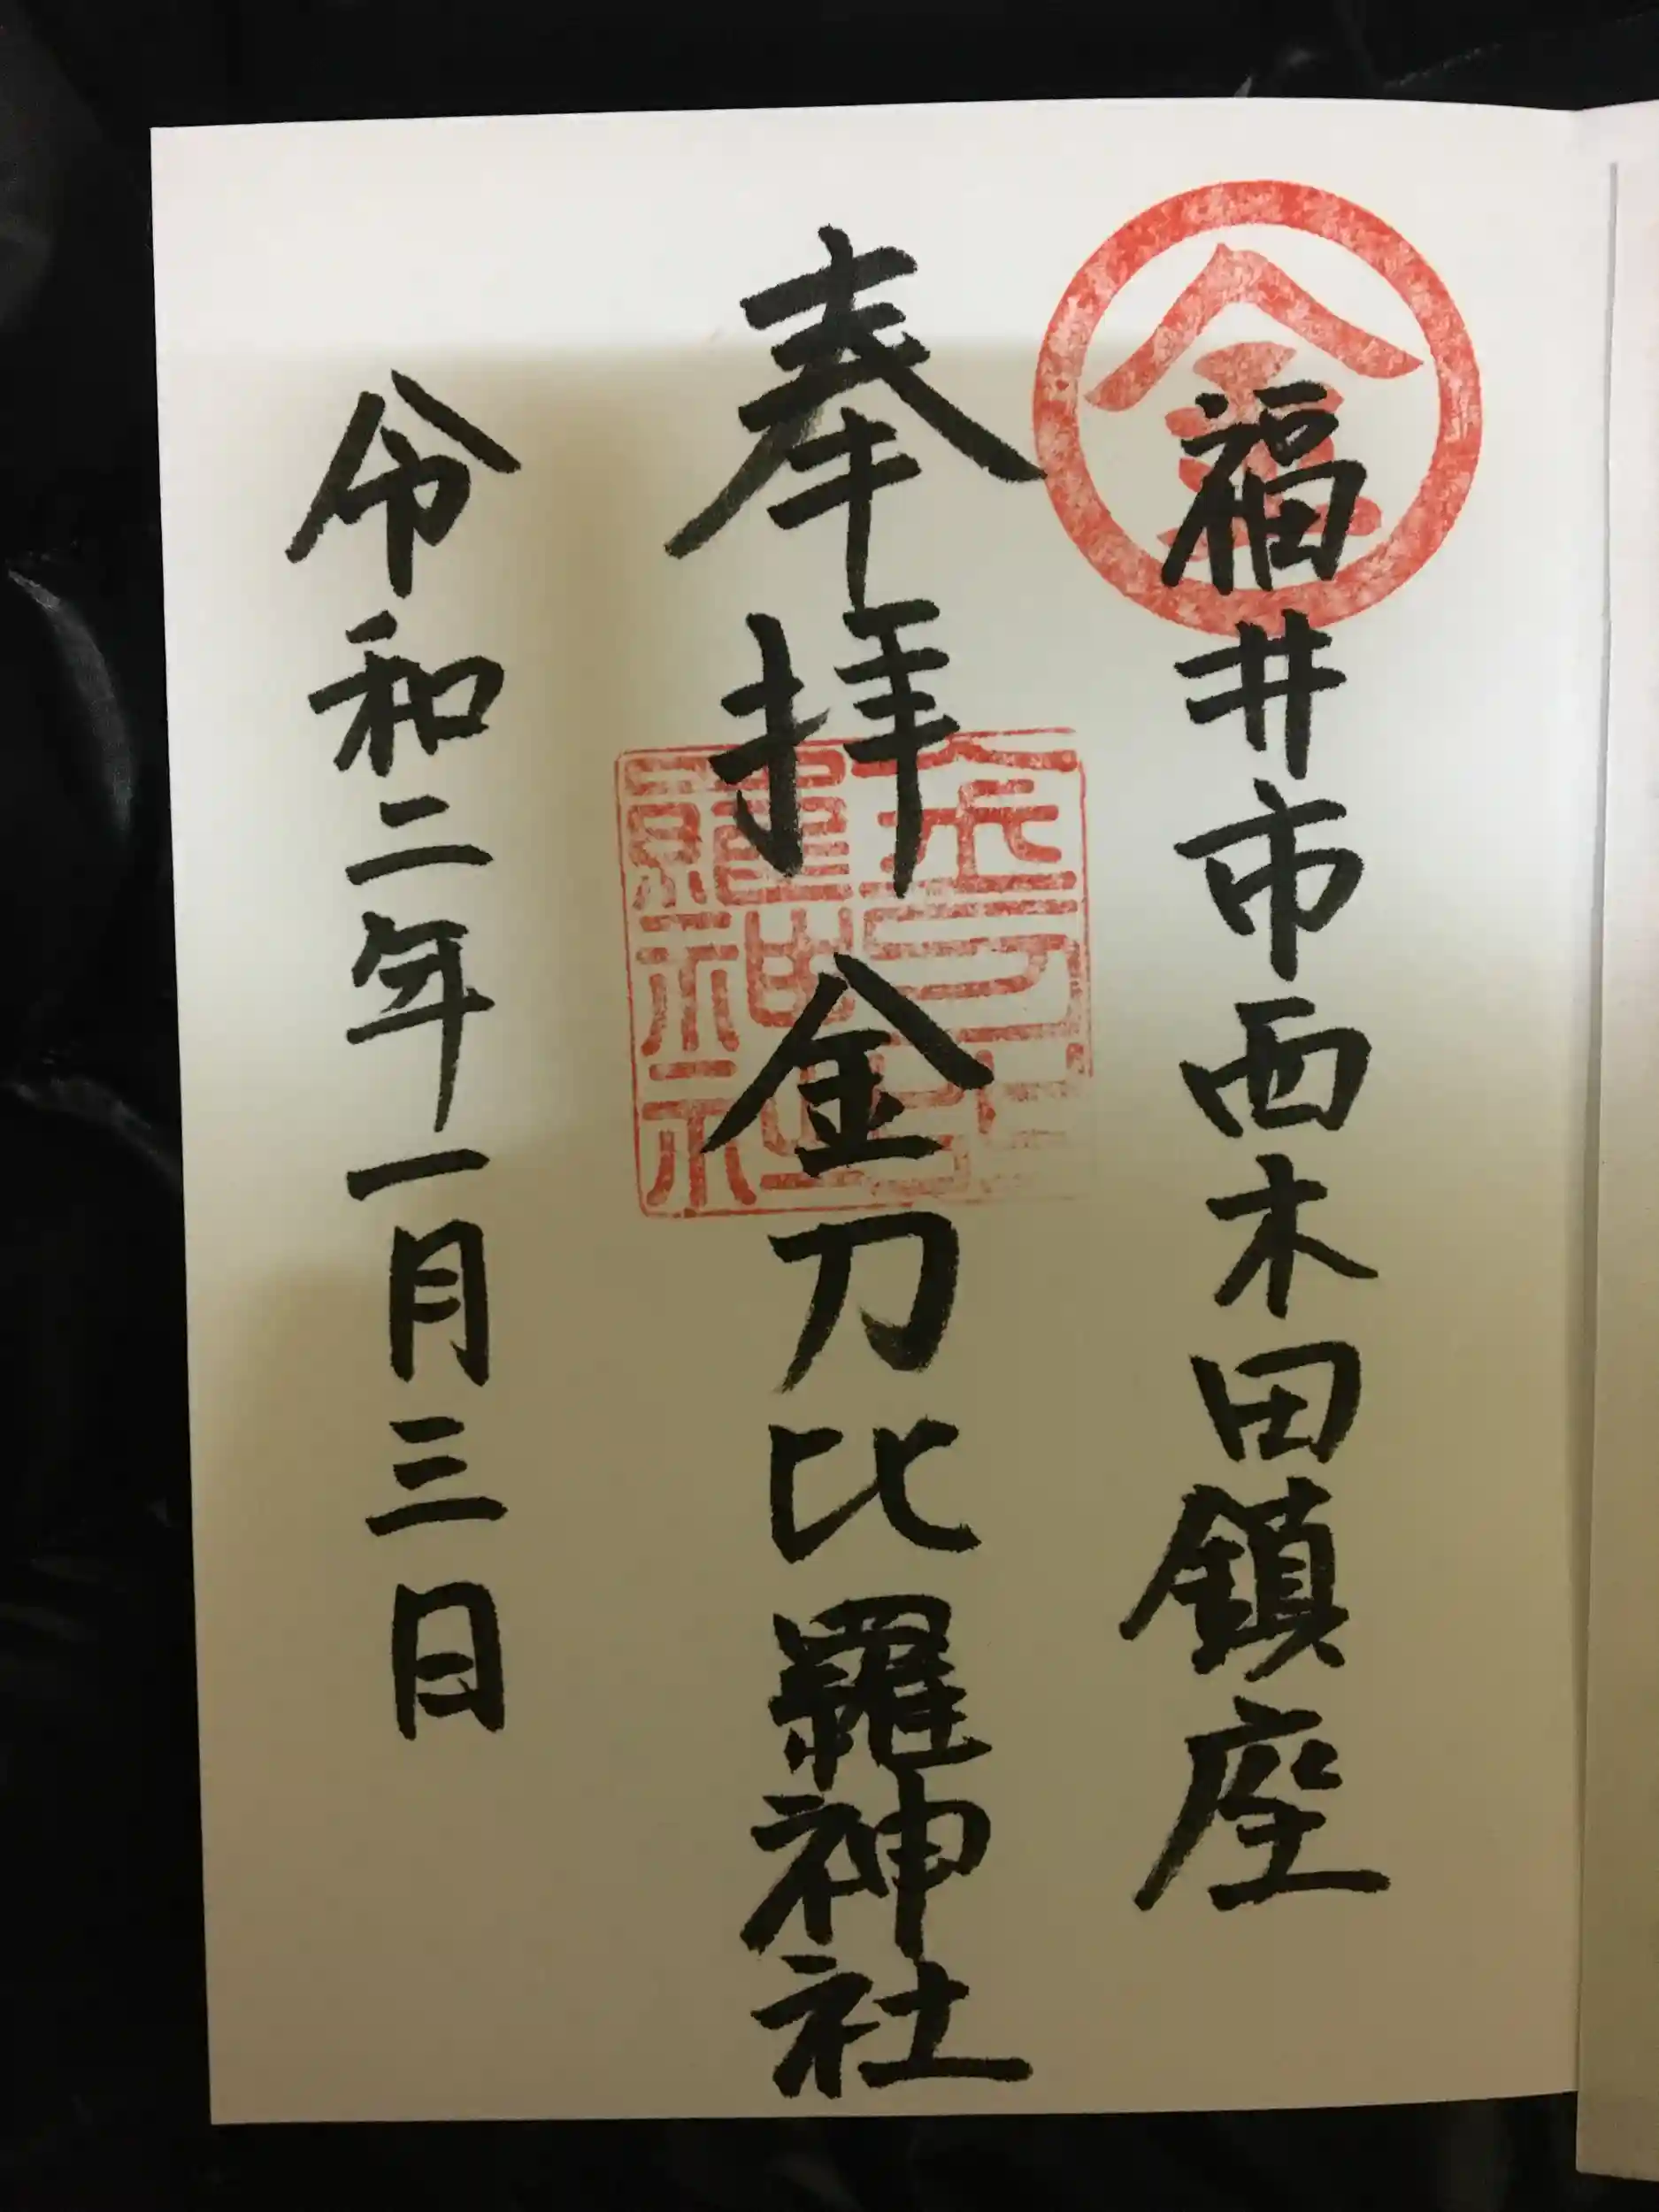 福井市西木田鎮座
奉拝 金刀比羅神社
令和二年一月三日
金
金刀比羅神社